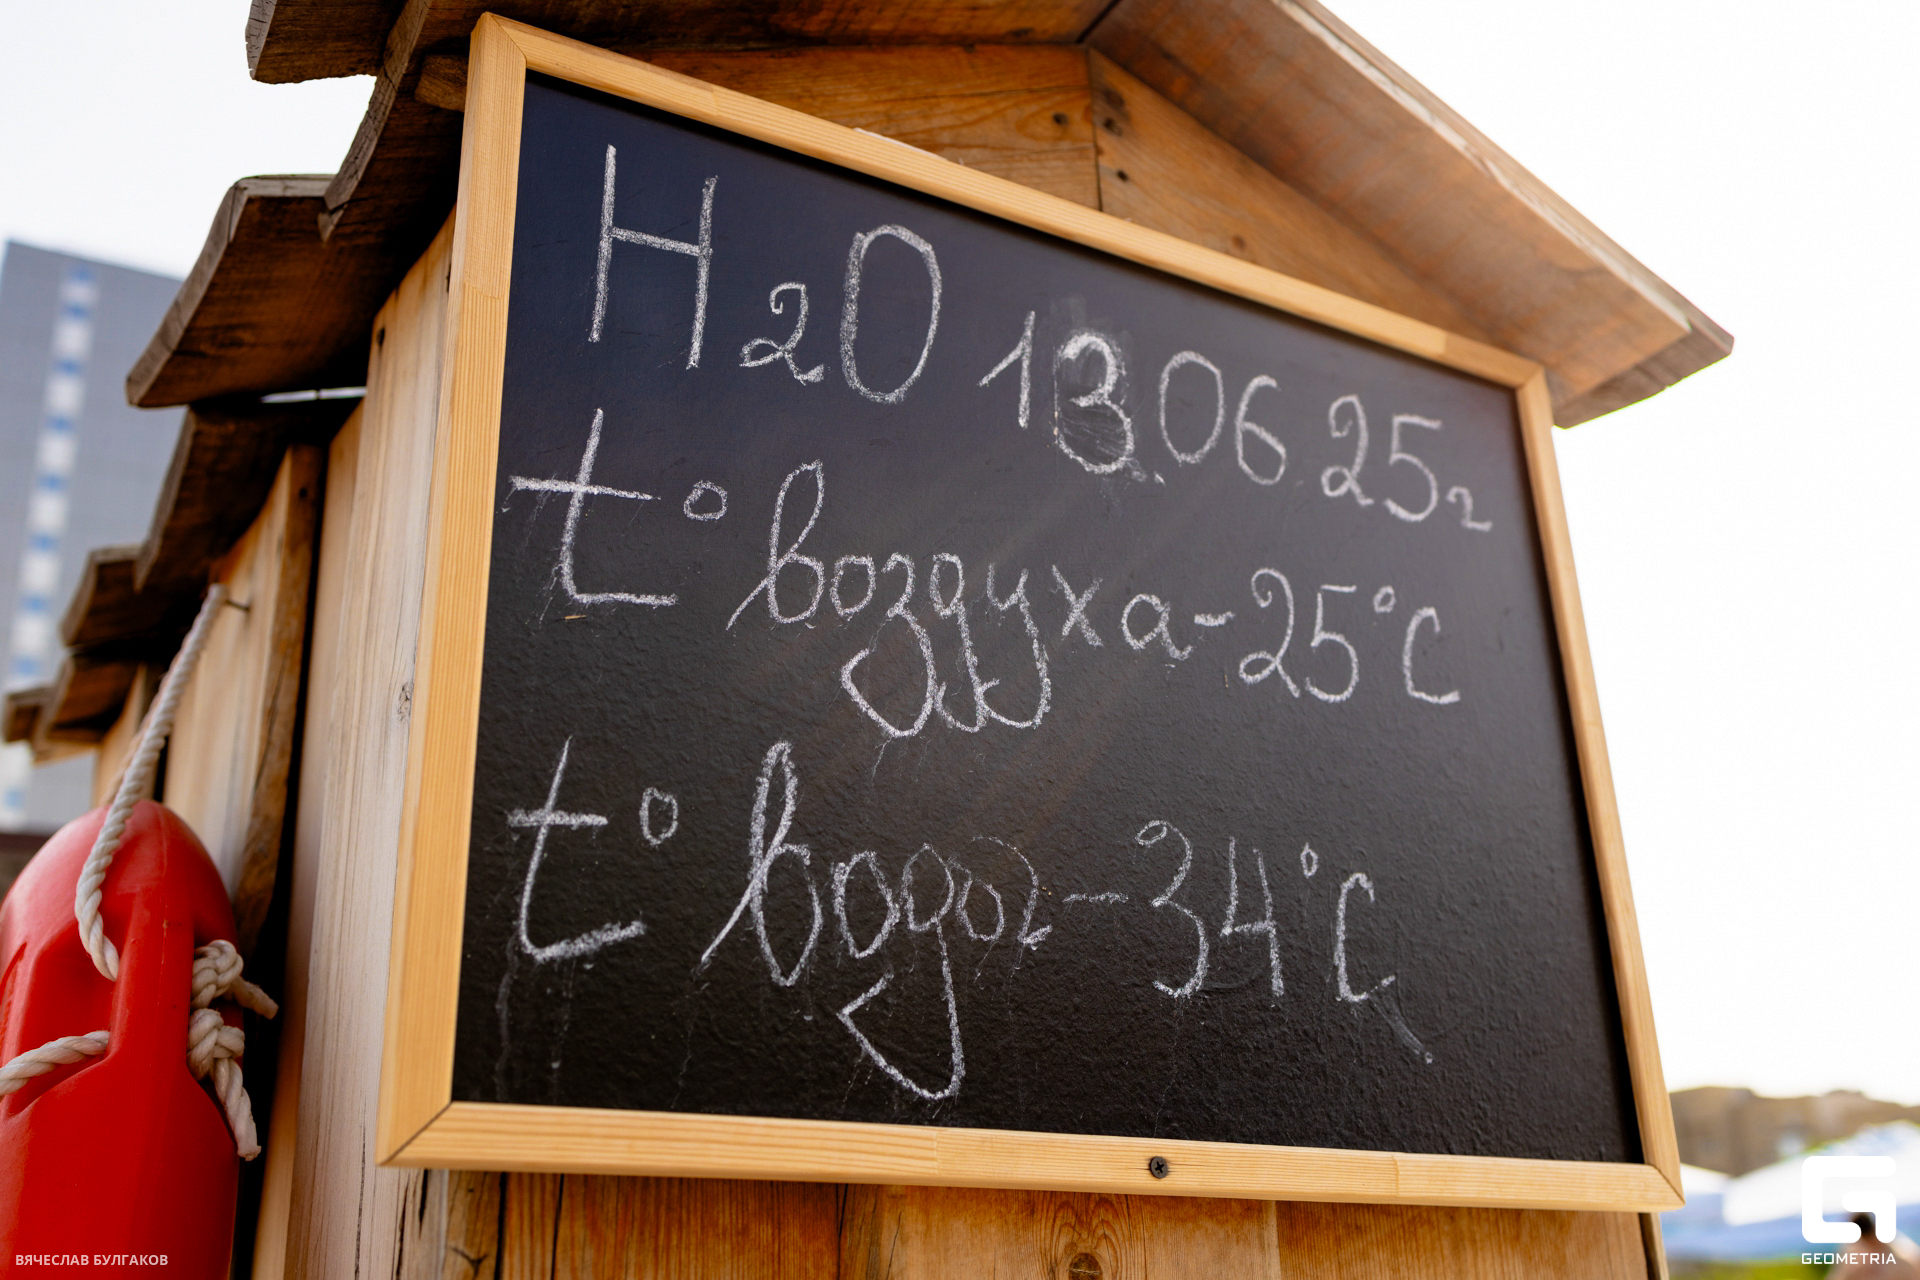 H₂O 13.06.25г
t° воздуха-25°C
t° воды-34°C
ВЯЧЕСЛАВ БУЛГАКОВ
GEOMETRIA